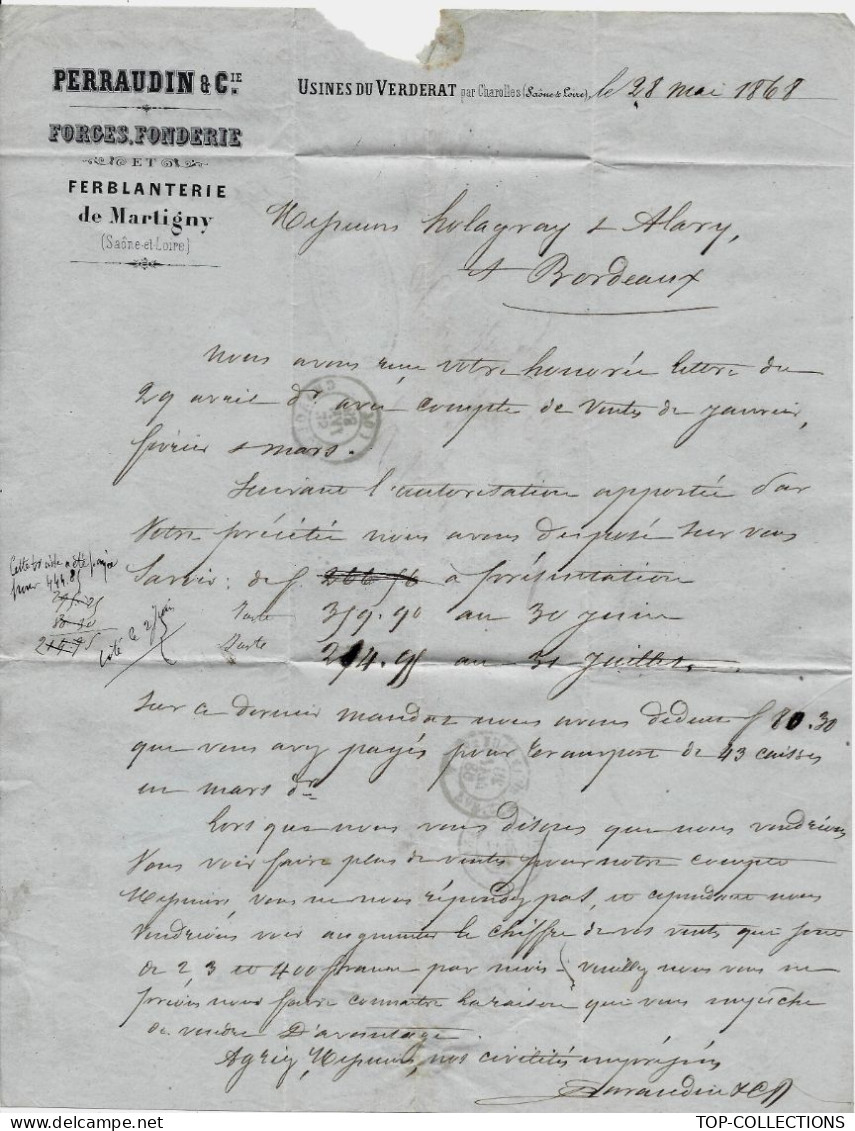 PERRAUDIN & CIE.
FORGES, FONDERIE
ET
FERBLANTERIE
de Martigny
(Saône-et-Loire)
USINES DU VERDERAT par Charolles (Saône & Loire), le 28 mai 1868
Messieurs Lolagnay & Alary,
à Bordeaux
Nous avons reçu votre honorée lettre du
29 avril dr avec compte de ventes de janvier,
février & mars.
Suivant l'autorisation apportée par
Votre précitée nous avons disposé sur vous
Savoir: de f. 266.56 à présentation
Juste 359.90 au 30 juin
Juste 274.95 au 31 juillet.
Cette traite a été payée
pour 444.85
Sur ce dernier mandat nous avons déduit f 80.30
que vous avez payés pour transport de 43 caisses
en mars dr
Lors que nous vous disons que nous voudrions
Vous voir faire plus de ventes pour notre compte
Messieurs vous ne nous répondez pas, et cependant nous
Voudrions voir augmenter le chiffre de vos ventes qui sont
de 2, 3 et 400 francs par mois. veuillez nous vous en
prions nous faire connaître la raison qui vous empêche
de vendre D'avantage.
Agréez, Messieurs, nos civilités empressées
Perraudin & Cie
TOP-COLLECTIONS